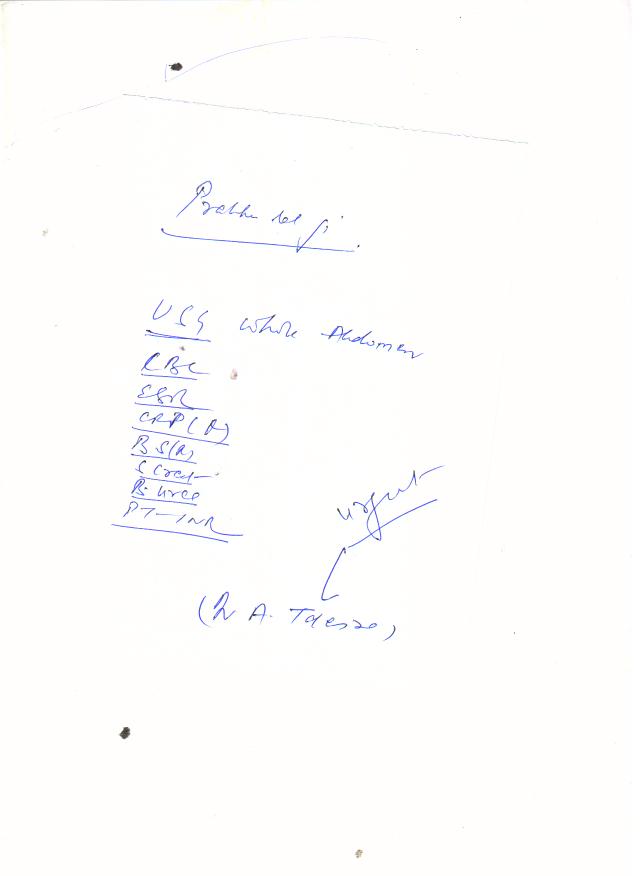 Prabhu lal ji
USG whole Abdomen
CBC
ESR
CRP (R)
BS(R)
S Creat
B. Urea
PT-INR
Urgent
(Dr A.